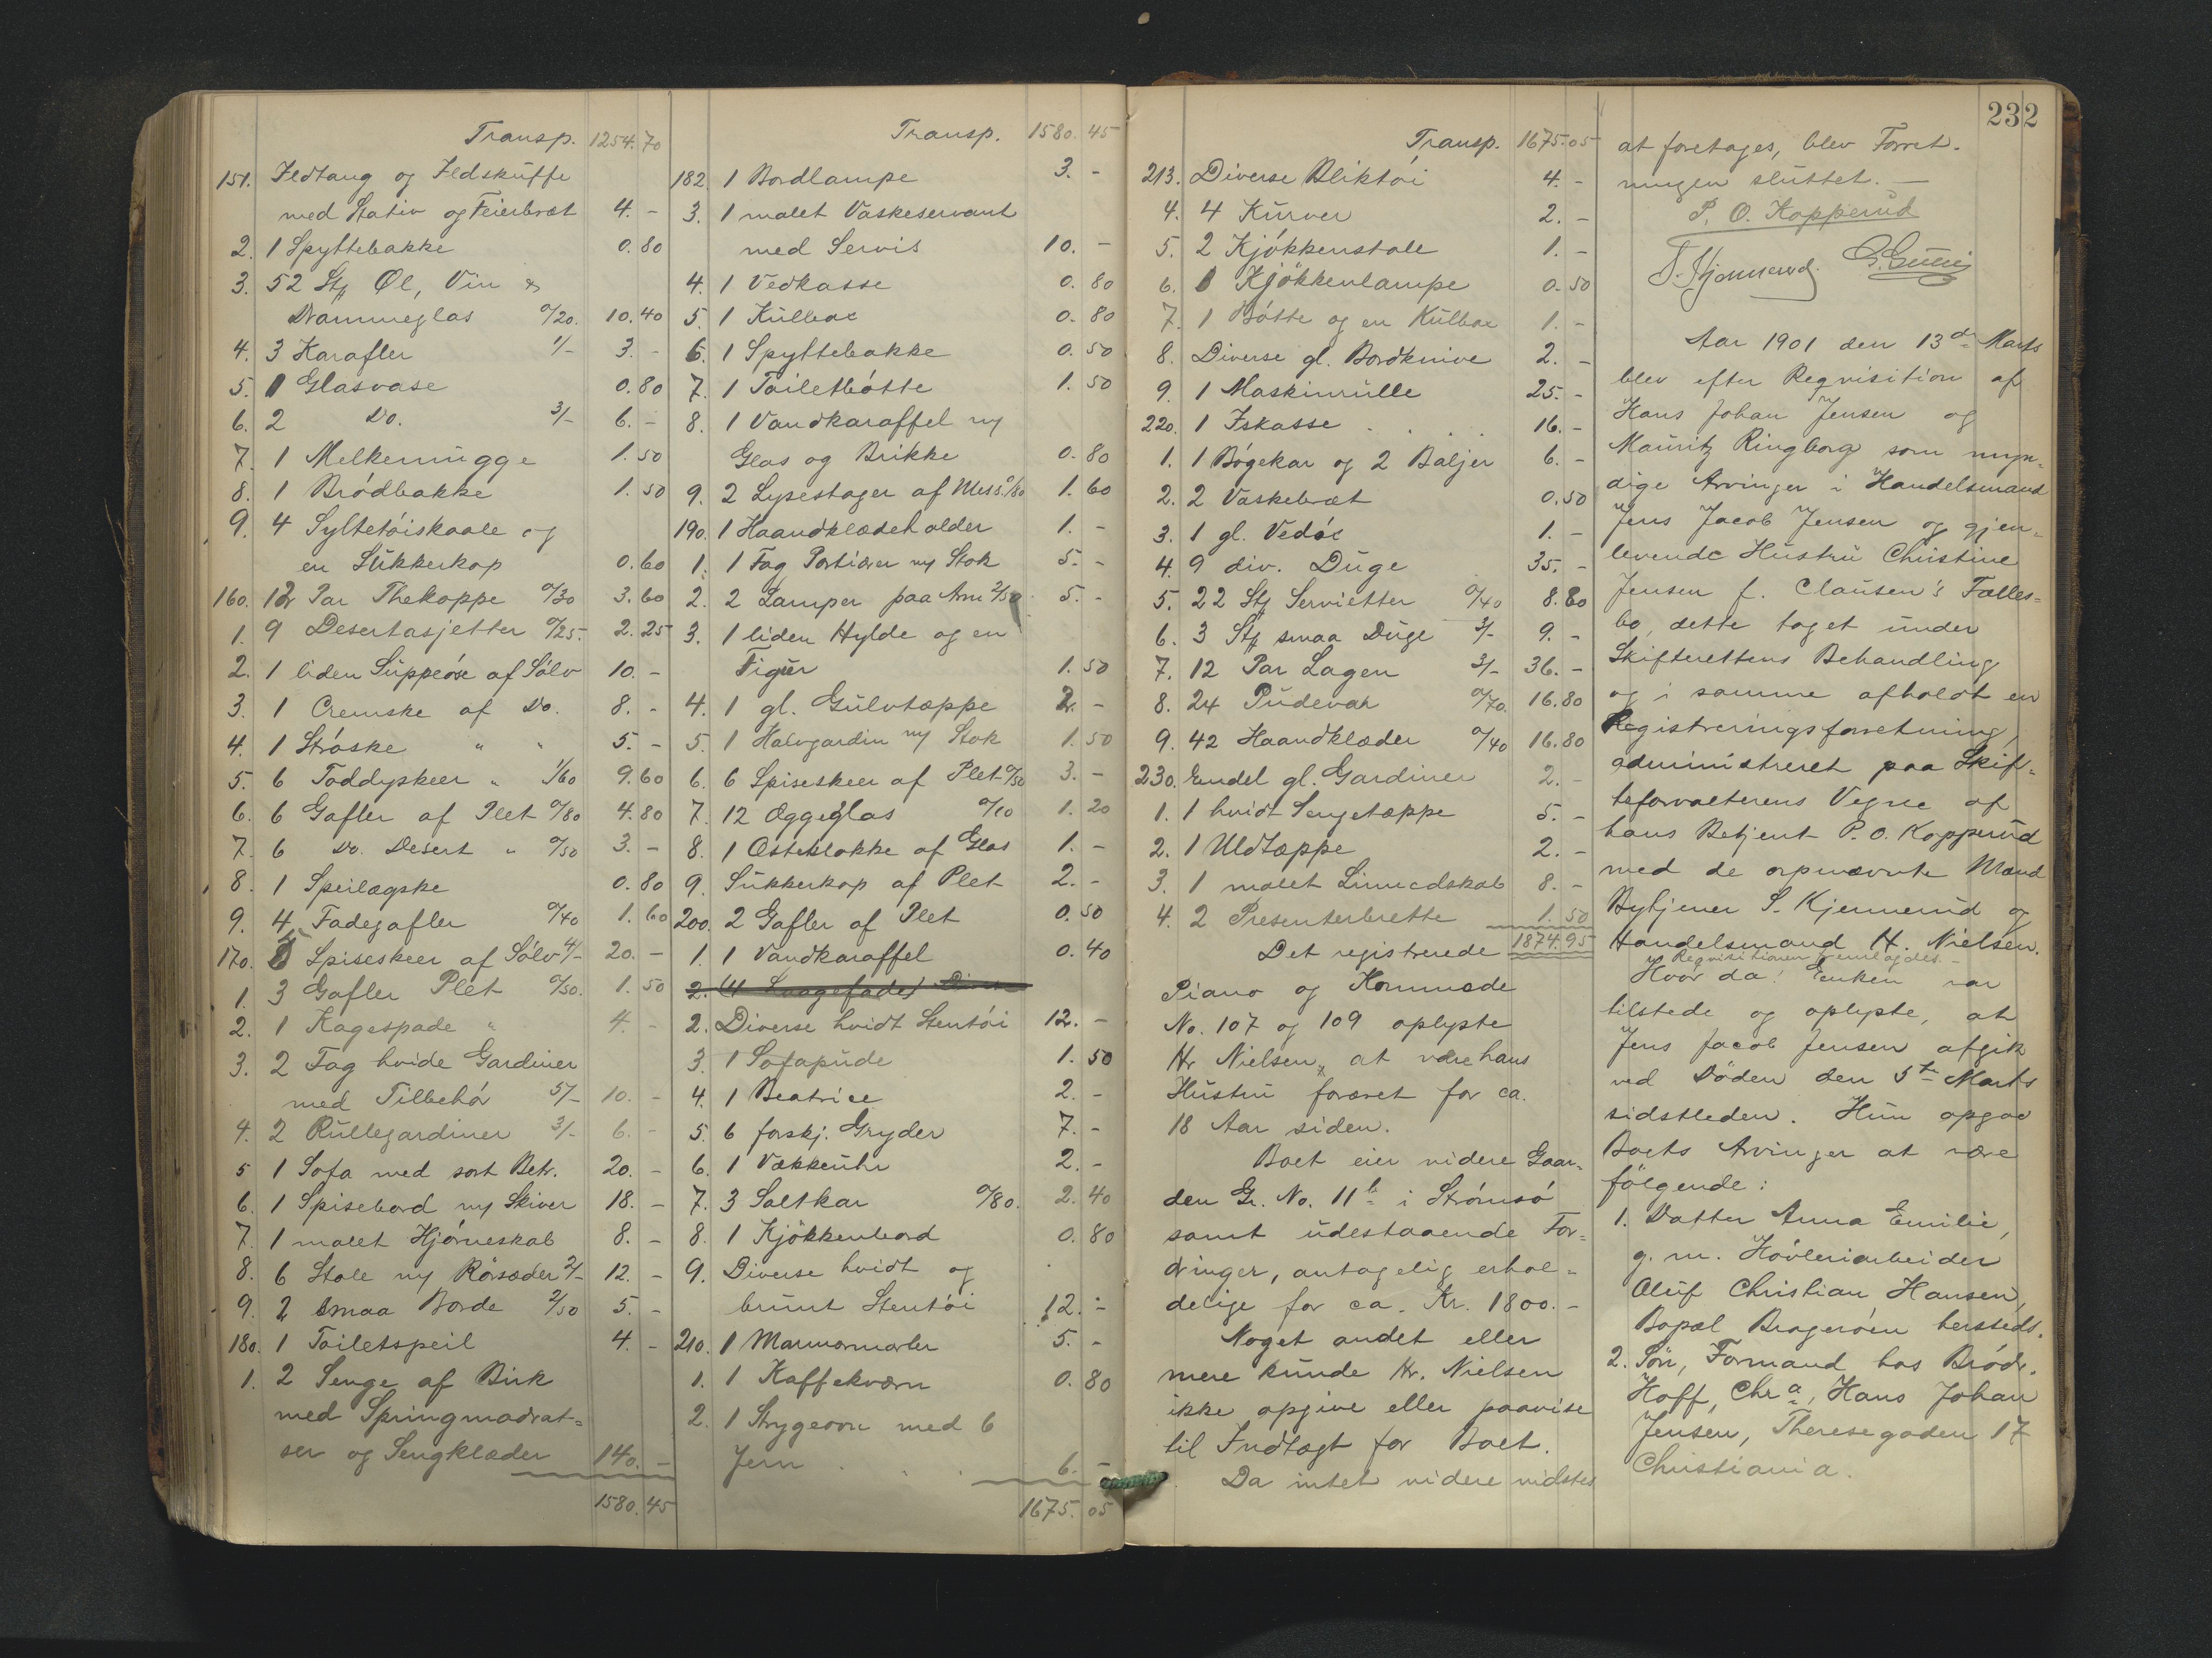 Transp. 1254.70
151. Ildtang og Ildskuffe
med Stativ og Feierbræt 4. -
2. 1 Spyttebakke 0.80
3. 52 Stk Øl, Vin &
Drammeglas 0/20. 10.40
4. 3 Karafler 1/- 3. -
5. 1 Glasvase 0.80
6. 2 Do. 3/- 6. -
7. 1 Melkemugge 1.50
8. 1 Brödbakke 1.50
9. 4 Syltetöiskaale og
en Sukkerkop 0.60
160. 12 Par Thekoppe 0/30 3.60
1. 9 Desertasjetter 0/25. 2.25
2. 1 liden Suppeöse af Sölv 10. -
3. 1 Cremske af Do. 8. -
4. 1 Ströske " " 5. -
5. 6 Toddyskeer " 1/60 9.60
6. 6 Gafler af Plet 0/80 4.80
7. 6 Do. Desert " 0/50 3. -
8. 1 Speilægske 0.80
9. 4 Fadegafler 0/40 1.60
170. 5 Spiseskeer af Sölv 4/- 20. -
1. 3 Gafler Plet 0/50. 1.50
2. 1 Kagespade " 4. -
3. 2 Fag hvide Gardiner
med Tilbehör 5/- 10. -
4. 2 Rullegardiner 3/- 6. -
5 1 Sofa med sort Betr. 20. -
6. 1 Spisebord m/ Skiver 18. -
7. 1 malet Hjörneskab 8. -
8. 6 Stole m/ Rörsæder 2/- 12. -
9. 2 smaa Borde 2/50 5. -
180. 1 Toiletspeil 4. -
1. 2 Senge af Birk
med Springmadrat=
ser og Sengklæder 140. -
1580.45
Transp. 1580.45
182. 1 Bordlampe 3. -
3. 1 malet Vaskeservant
med Servis 10. -
4. 1 Vedkasse 0.80
5. 1 Kulbox 0.80
6. 1 Spyttebakke 0.50
7. 1 Toiletbötte 1.50
8. 1 Vandkaraffel m/
Glas og Brikke 0.80
9. 2 Lysestager af Mess. 0/80 1.60
190. 1 Haandklædeholder 1. -
1. 1 Fag Portiærer m/ Stok 5. -
2. 2 Lamper paa Arm 2/50 5. -
3. 1 liden Hylde og en
Figur 1.50
4. 1 gl. Gulvtæppe 2. -
5. 1 Halvgardin m/ Stok 1.50
6. 6 Spiseskeer af Plet 0/50 3. -
7. 12 Æggeglas 0/10 1.20
8. 1 Osteklokke af Glas 1. -
9. Sukkerkop af Plet 2. -
200. 2 Gafler af Plet 0.50
1. 1 Vandkaraffel 0.40
2.
2. Diverse hvidt Stentöi 12. -
3. 1 Sofapude 1.50
4. 1 Beatrice 2. -
5. 6 forskj. Gryder 7. -
6. 1 Vækkeuhr 2. -
7. 3 Saltkar 0/80. 2.40
8. 1 Kjökkenbord 0.80
9. Diverse hvidt og
brunt Stentöi 12. -
210. 1 Marmormorter 5. -
1. 1 Kaffekværn 0.80
2. 1 Strygeovn med 6
Jern 6. -
1675.05
232
Transp. 1675.05
213. Diverse Bliktöi 4. -
4. 4 Kurver 2. -
5. 2 Kjökkenstole 1. -
6. 1 Kjökkenlampe 0.50
7. 1 Bötte og en Kulbox 1. -
8. Diverse gl. Bordknive 2. -
9. 1 Maskinrulle 25. -
220. 1 Iskasse 16. -
1. 1 Bögekar og 2 Baljer 6. -
2. 2 Vaskebræt 0.50
3. 1 gl. Vedöx 1. -
4. 9 div. Duge 35. -
5. 22 Stk Servietter 0/40 8.80
6. 3 Stk smaa Duge 3/- 9. -
7. 12 Par Lagen 3/- 36. -
8. 24 Pudevar 0/70. 16.80
9. 42 Haandklæder 0/40 16.80
230. Endel gl. Gardiner 2. -
1. 1 hvidt Sengetæppe 5. -
2. 1 Uldtæppe 2. -
3. 1 malet Linnedskab 8. -
4. 2 Presenterbrette 1.50
Det registrerede 1874.95
Piano og Kommode
No. 107 og 109 oplyste
Hr Nielsen, at være hans
Hustru foræret for ca.
18 Aar siden.
Boet eier videre Gaar=
den Gr. No. 11b i Strömsö
samt udestaaende For=
dringer, antagelig erhol=
delige for ca. Kr. 1800. -
Noget andet eller
mere kunde Hr. Nielsen
ikke opgive eller paavise
til Indtægt for Boet.
Da intet videre vidstes
at foretages, blev Forret.
ningen sluttet. -
P. O. Kopperud
S. Kjennerud.
Aar 1901 den 13de Marts
blev efter Reqvisition af
Hans Johan Jensen og
Mauritz Ringborg som myn=
dige Arvinger i Handelsmand
Jens Jacob Jensen og gjen=
levende Hustru Christine
Jensen f. Clausen's Fælles=
bo, dette taget under
Skifterettens Behandling
og i samme afholdt en
Registreringsforretning,
administreret paa Skif=
teforvalterens Vegne af
hans Betjent P. O. Kopperud
med de opnævnte Mænd
Bytjener S. Kjennerud og
Handelsmand H. Nielsen.
Reqvisitionen fremlagdes. -
Hvor da! Enken var
tilstede og oplyste, at
Jens Jacob Jensen afgik
ved Döden den 5te Marts
sidstleden. Hun opgav
Boets Arvinger at være
fölgende:
1. Datter Anna Emilie,
g. m. Hövleriarbeider
Oluf Christian Hansen,
Bopæl Brageröen hersteds.
2. Sön, Formand hos Brödr.
Hoff, Chra, Hans Johan
Jensen, Theresegaden 17
Christiania.